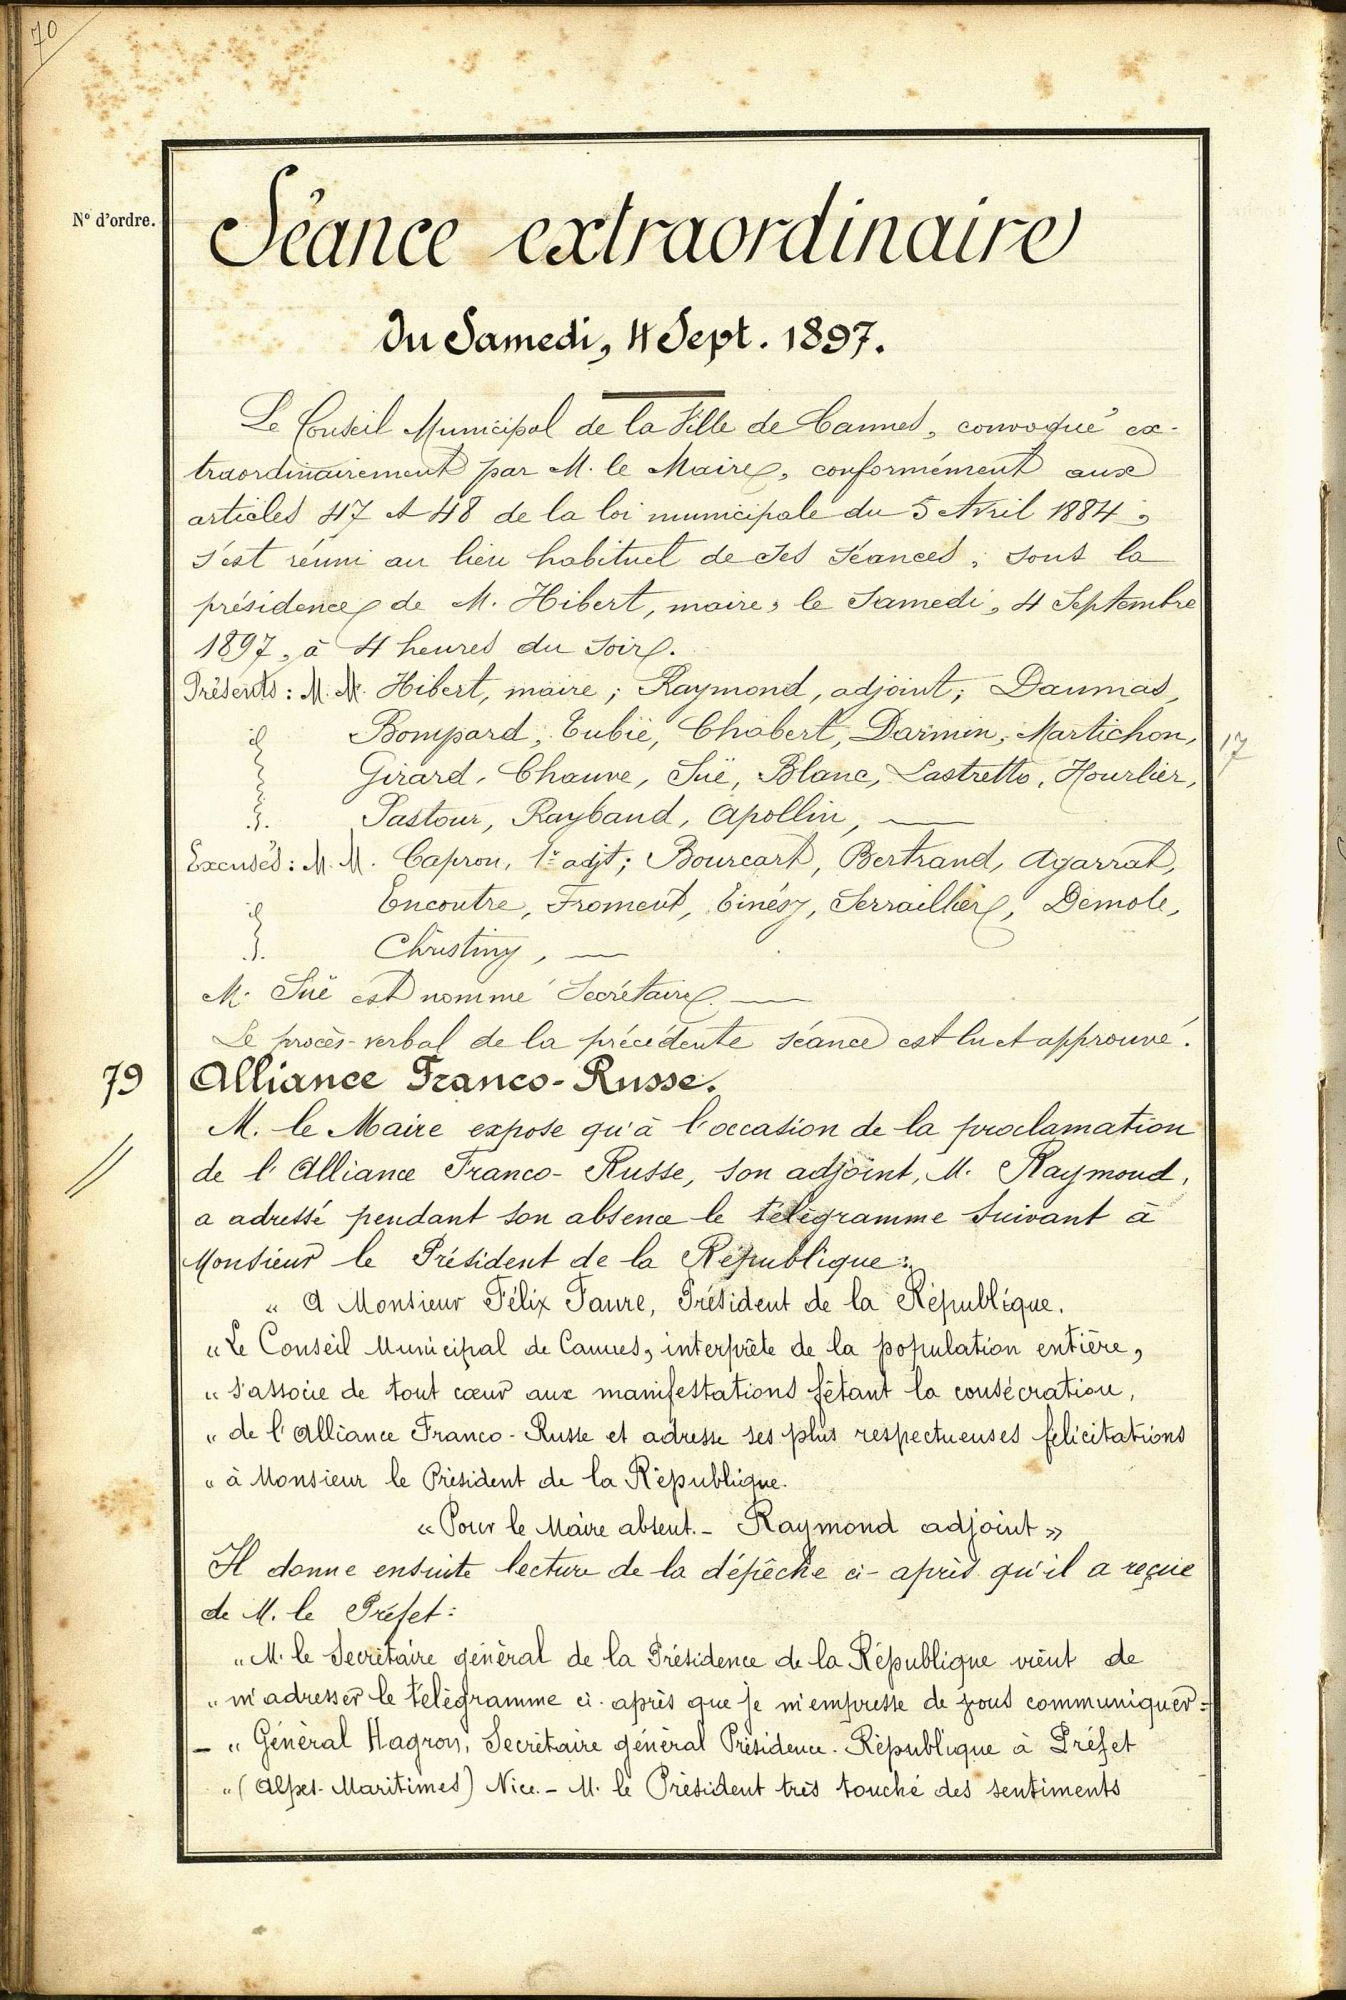 70
N° d'ordre.
Séance extraordinaire
du Samedi, 4 Sept. 1897.
Le Conseil Municipal de la Ville de Cannes, convoqué ex-
traordinairement par M. le Maire, conformément aux
articles 47 et 48 de la loi municipale du 5 Avril 1884,
s'est réuni au lieu habituel de ses séances, sous la
présidence de M. Hibert, maire, le Samedi, 4 Septembre
1897, à 4 heures du soir.
Présents : M. M. Hibert, maire ; Raymond, adjoint ; Daumas,
Bompard, Eubié, Chabert, Darmin, Martichon,
17
Girard, Chauve, Süe, Blanc, Lastretto, Hourlier,
Pastour, Raybaud, Apollin,
Excusés : M. M. Capron, 1er adjt ; Bourcart, Bertrand, Agarrat,
Encoutre, Froment, Einésy, Serraillier, Demole,
Christiny,
M. Süe est nommé Secrétaire.
Le procès-verbal de la précédente séance est lu et approuvé.
79 Alliance Franco-Russe.
M. le Maire expose qu'à l'occasion de la proclamation
de l'Alliance Franco-Russe, son adjoint, M. Raymond,
a adressé pendant son absence le télégramme suivant à
Monsieur le Président de la République :
" A Monsieur Félix Faure, Président de la République.
" Le Conseil Municipal de Cannes, interprète de la population entière,
" s'associe de tout cœur aux manifestations fêtant la consécration,
" de l'Alliance Franco-Russe et adresse ses plus respectueuses felicitations
" à Monsieur le Président de la République.
" Pour le Maire absent. - Raymond adjoint »
Il donne ensuite lecture de la dépêche ci-après qu'il a reçue
de M. le Préfet :
" M. le Secrétaire général de la Présidence de la République vient de
" m'adresser le télégramme ci-après que je m'empresse de vous communiquer =
- " Général Hagron, Secrétaire général Présidence. République à Préfet
" (Alpes-Maritimes) Nice. - M. le Président très touché des sentiments